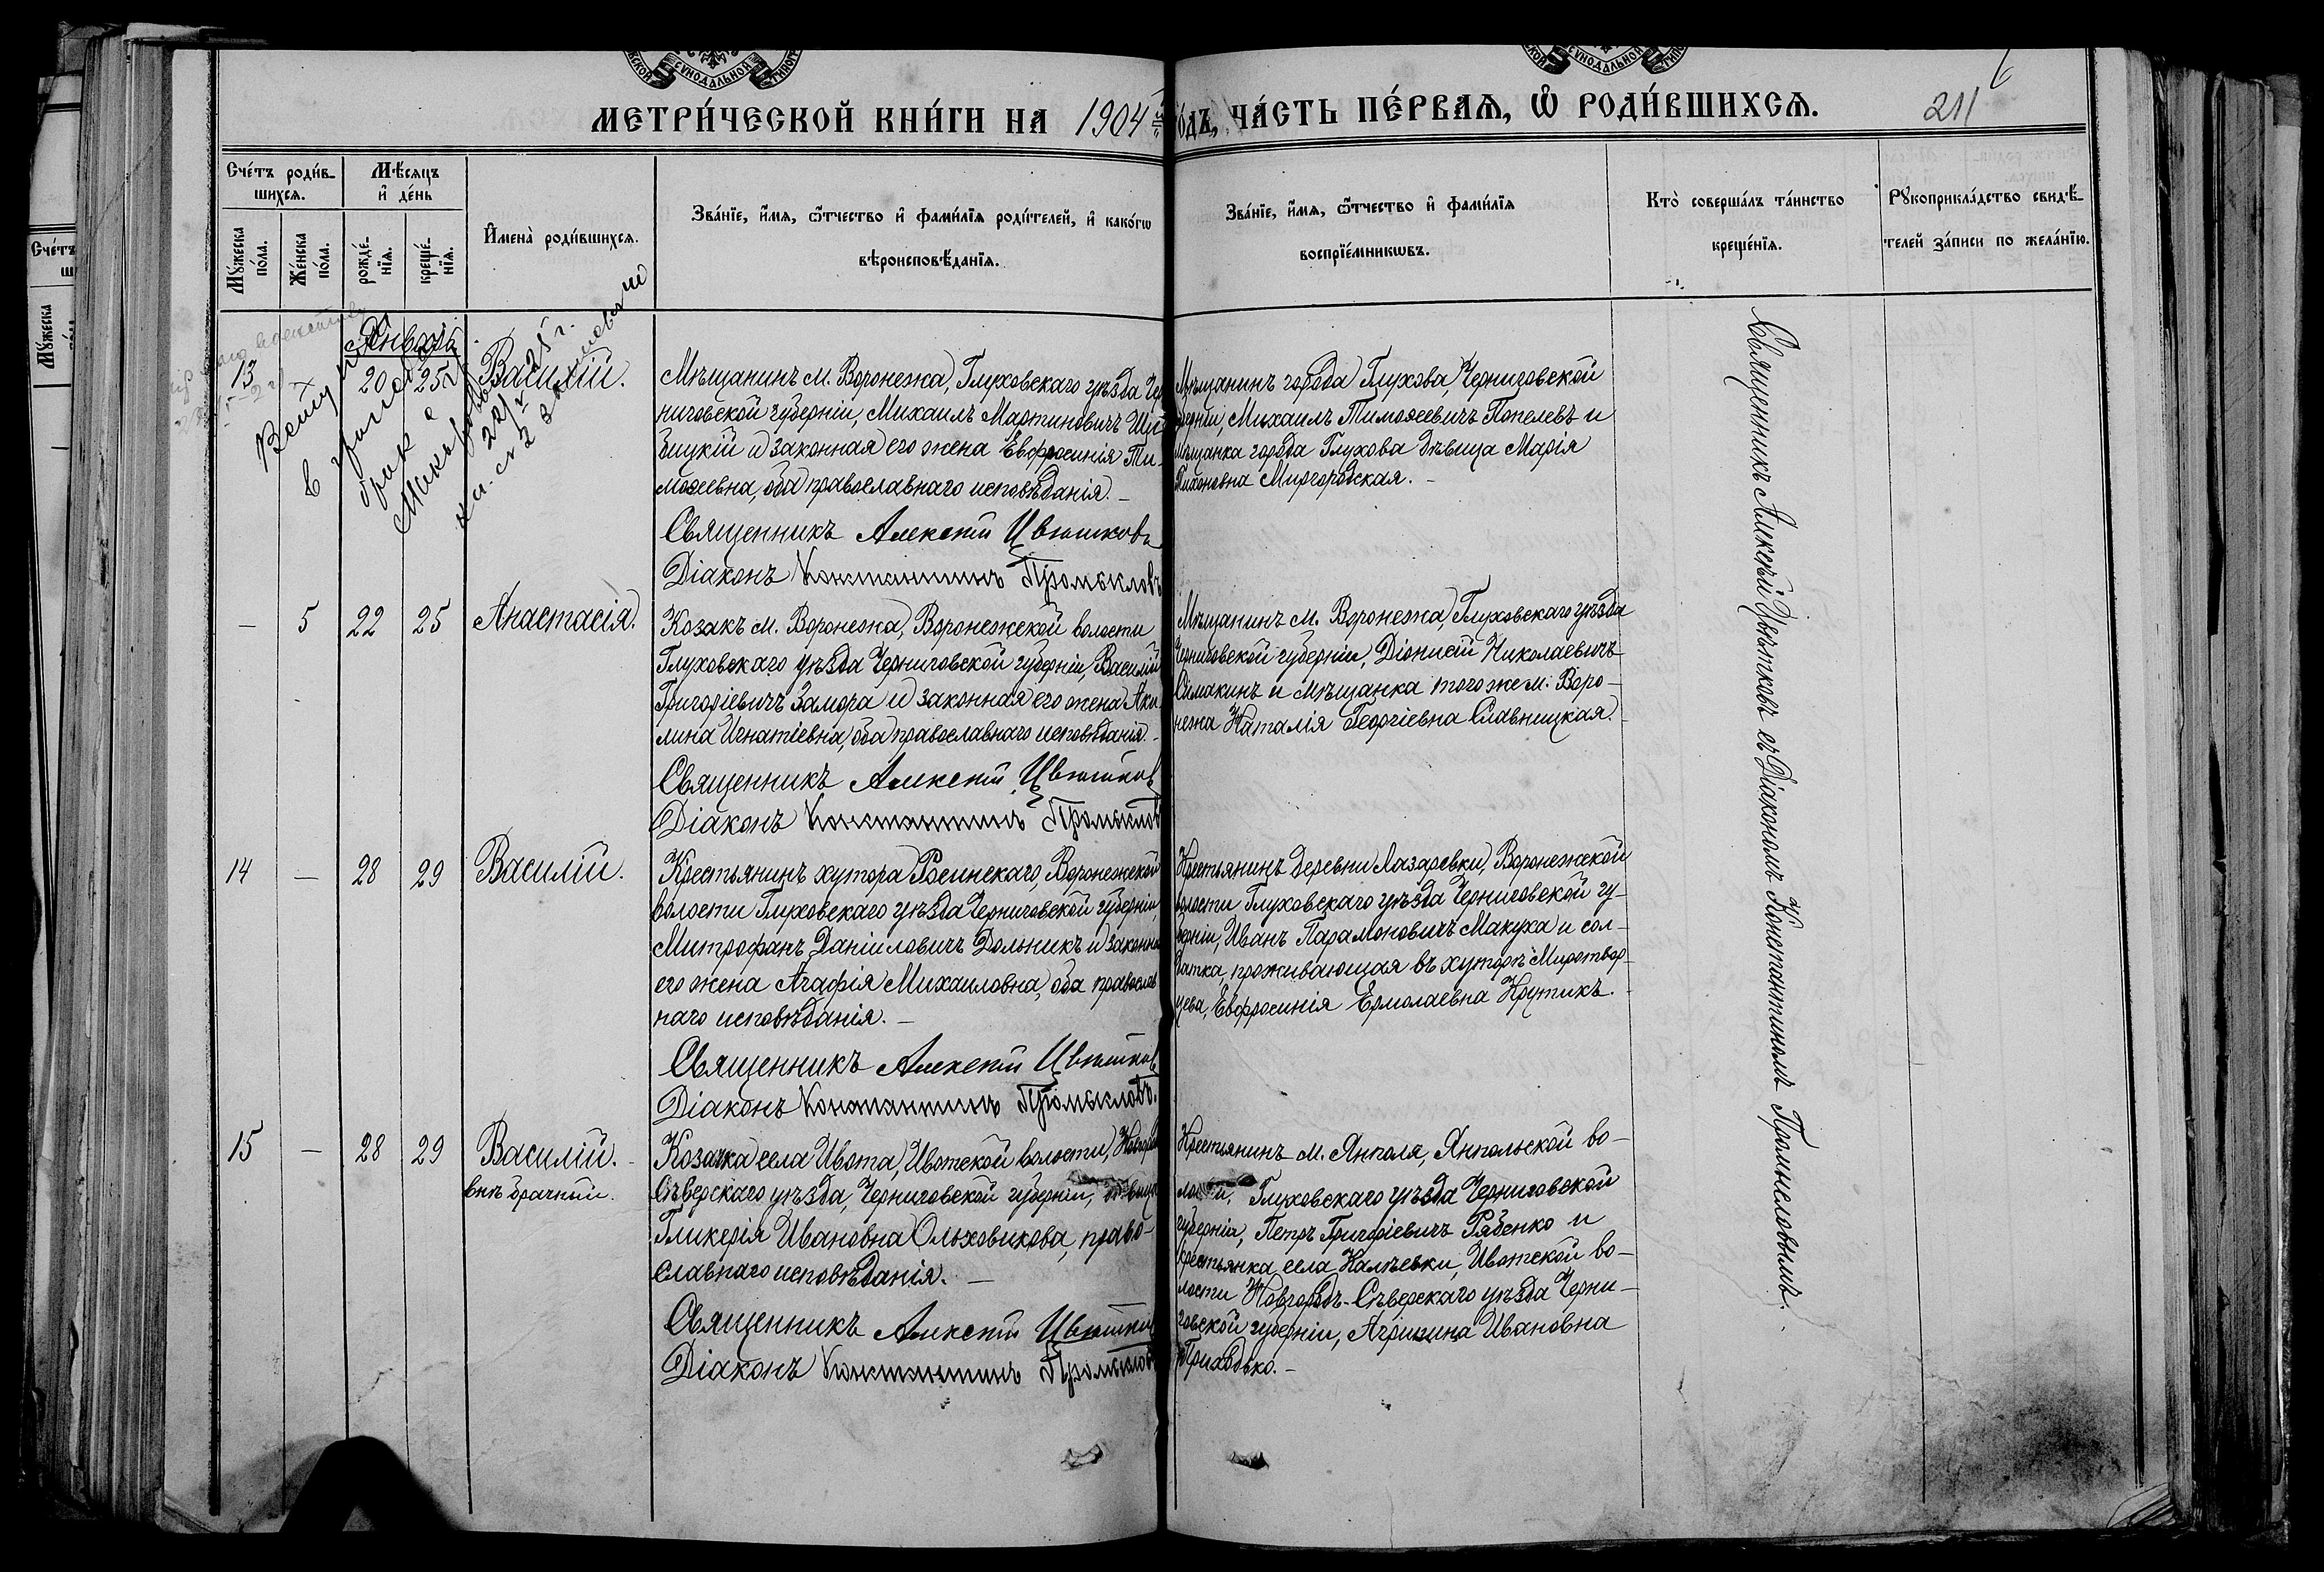 МЕТРИ́ЧЕСКОЙ КНИ́ГИ НА 1904 го́дъ, ЧА́СТЬ ПЕ́РВАѦ, Ѡ҆ РОДИ́ВШИХСѦ.
211
Сче́тъ роди́в-
шихсѧ.
Мѣ́сѧцъ
и҆ де́нь
Мꙋ́жеска
по́ла.
Же́нска
по́ла.
рожде́-
нїѧ.
креще́-
нїѧ.
И҆мена̀ роди́вшихсѧ.
Зва́нїе, и҆́мѧ, ѻ҆́тчество и҆ фами́лїѧ роди́телей, и҆ како́гѡ
вѣроисповѣ́данїѧ.
Зва́нїе, и҆́мѧ, ѻ҆́тчество и҆ фами́лїѧ
воспрїе́мникѡвъ.
Кто̀ соверша́лъ та́инство
креще́нїѧ.
Рꙋкоприкла́дство свидѣ́-
телей за́писи по жела́нїю.
Январь
13 20 25 Василій.
Мѣщанинъ м. Воронежа, Глуховскаго уѣзда Чер
ниговской губерніи, Михаилъ Мартиновичъ
бицкій и законная его жена Евфросинія Ти-
моѳеевна, оба православнаго исповѣданія. -
Священникъ Алексій Цвѣтковъ
Діаконъ Константинъ Промысловъ
Мѣщанинъ города Глухова, Черниговской
губерніи, Михаилъ Тимоѳеевичъ Попелевъ и
мѣщанка города Глухова дѣвица Марія
Тихоновна Миргородская. -
- 5 22 25 Анастасія.
Козакъ м. Воронежа, Воронежской волости
Глуховскаго уѣзда Черниговской губерніи, Василій
Григоріевичъ Замора и законная его жена Аки
лина Игнатіевна, оба православнаго исповѣданія. -
Священникъ Алексій Цвѣтков
Діаконъ Константинъ Промыслов
Мѣщанинъ м. Воронежа, Глуховскаго уѣзда
Черниговской губерніи, Діонисій Николаевичъ
Симакинъ и мѣщанка того же м. Воро-
нежа Наталія Георгіевна Славницкая.
14 - 28 29 Василій.
Крестьянинъ хутора Росинскаго, Воронежской
волости Глуховскаго уѣзда Черниговской губерніи,
Митрофанъ Даніиловичъ Дольникъ и законна
его жена Агафія Михаиловна, оба православ
наго исповѣданія. -
Священникъ Алексій Цвѣтков
Діаконъ Константинъ Промысловъ.
Крестьянинъ деревни Лазаревки, Воронежской
волости Глуховскаго уѣзда Черниговской гу-
берніи, Иванъ Парамоновичъ Макуха и сол-
датка, проживающая въ хуторѣ Миротвор-
цева, Евфросинія Ермолаевна Крутикъ.
15 - 28 29 Василій. -
внѣбрачный.
Козачка села Ивота, Ивотской волости, Новгород
Сѣверскаго уѣзда, Черниговской губерніи, дѣвица
Гликерія Ивановна Ольховикова, право-
славнаго исповѣданія. -
Священникъ Алексій Цвѣтков
Діаконъ Константинъ Промыслов
Крестьянинъ м. Янполя, Янпольской во-
лости, Глуховскаго уѣзда Черниговской
губерніи, Петръ Григоріевичъ Рябенко и
крестьянка села Калѣевки, Ивотской во-
лости Новгородъ-Сѣверскаго уѣзда Черни-
говской губерніи, Агрипина Ивановна
Приходько. -
Священникъ Алексѣй Цвѣтковъ съ Діакономъ Константиномъ Промысловымъ.